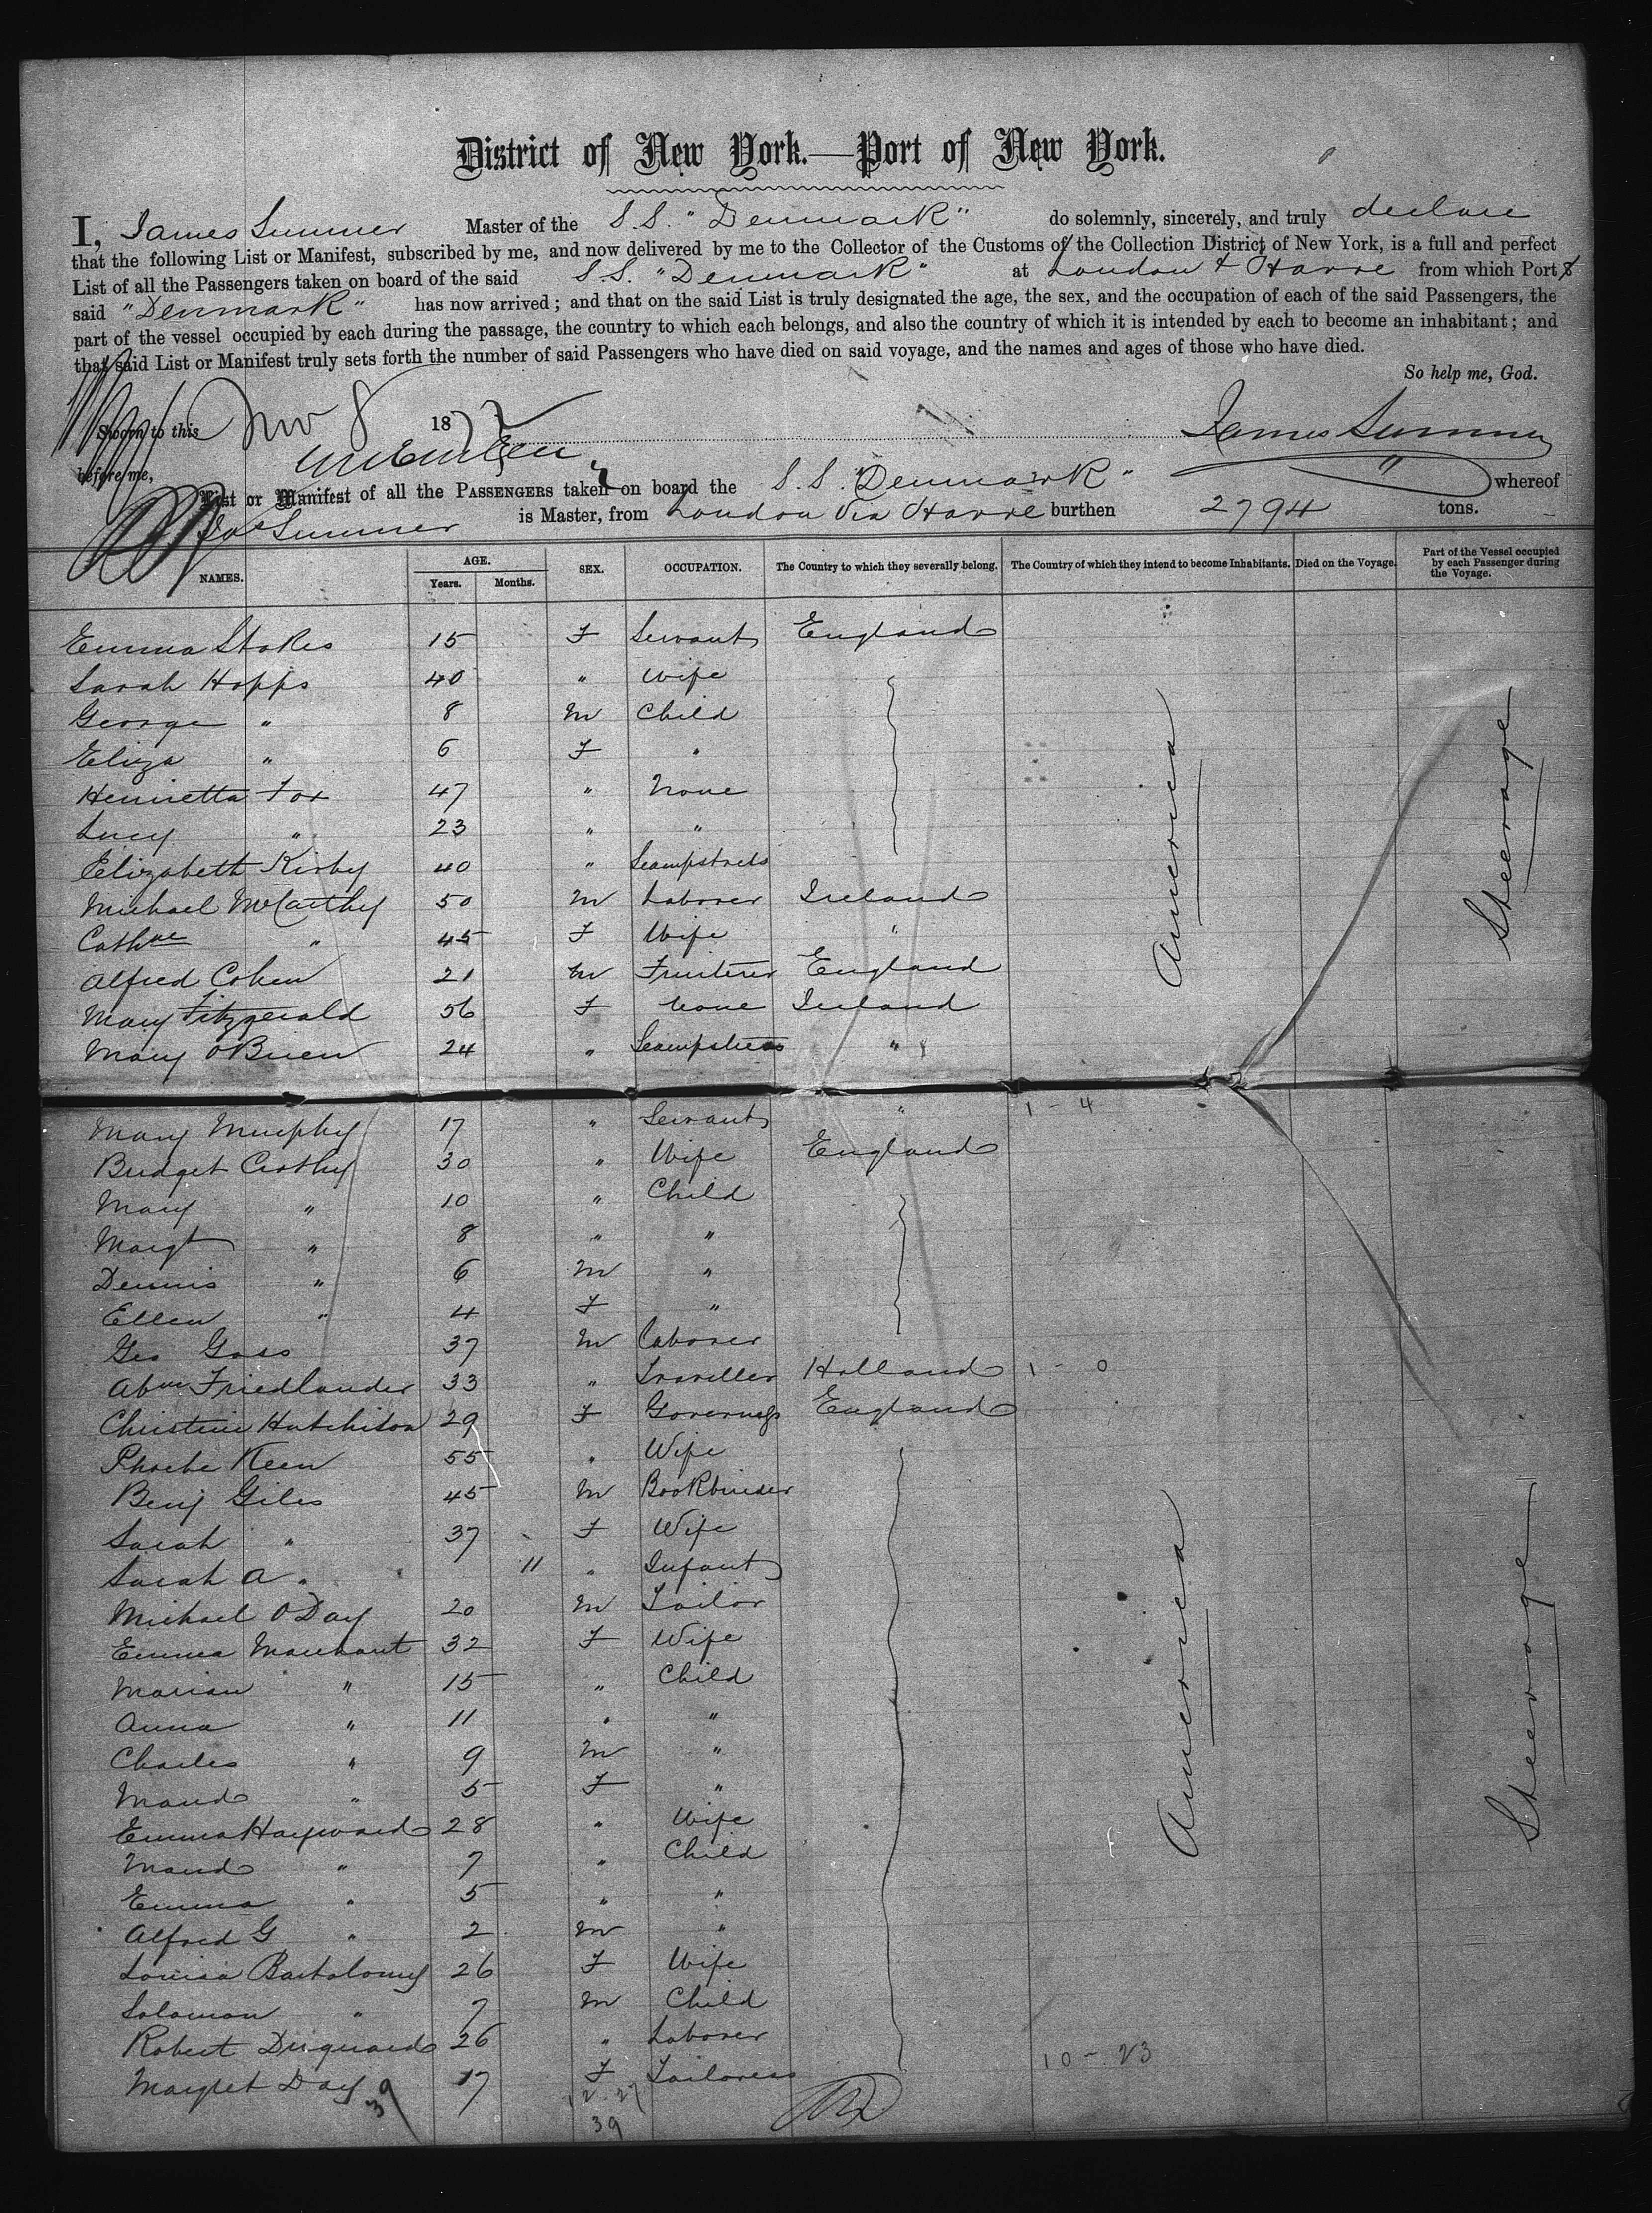 District of New York.—Port of New York.
I, James Sumner Master of the S.S. "Denmark" do solemnly, sincerely, and truly declare
that the following List or Manifest, subscribed by me, and now delivered by me to the Collector of the Customs of the Collection District of New York, is a full and perfect
List of all the Passengers taken on board of the said S.S. "Denmark" at London & Havre from which Port
said "Denmark" has now arrived; and that on the said List is truly designated the age, the sex, and the occupation of each of the said Passengers, the
part of the vessel occupied by each during the passage, the country to which each belongs, and also the country of which it is intended by each to become an inhabitant; and
that said List or Manifest truly sets forth the number of said Passengers who have died on said voyage, and the names and ages of those who have died.
So help me, God.
Sworn to this Nov 8 1877 James Sumner
before me,
List or Manifest of all the PASSENGERS taken on board the S.S. "Denmark" whereof
Jas Sumner is Master, from London Via Havre burthen 2794 tons.
NAMES. AGE. Years. Months. SEX. OCCUPATION. The Country to which they severally belong. The Country of which they intend to become Inhabitants. Died on the Voyage. Part of the Vessel occupied by each Passenger during the Voyage.
Emma Stokes 15 F Servant England
Sarah Hopps 40 " Wife
George " 8 M Child
Eliza " 6 F "
Henrietta Fox 47 " None
Lucy " 23 " "
Elizabeth Kirby 40 " Seampstress
Michael McCarthy 50 M Laborer Ireland
Cathne " 45 F Wife "
Alfred Cohen 21 M Fruiterer England
Mary Fitzgerald 56 F None Ireland
Mary OBrien 24 " Seampstress "
America
Steerage
Mary Murphy 17 " Servant " 1 - 4
Bridget Crothy 30 " Wife England
Mary " 10 " Child
Margt " 8 " "
Dennis " 6 M "
Ellen " 4 F "
Geo Goss 37 M Laborer
Abm Friedlander 33 " Traveller Holland 1 - 0
Christine Hutchison 29 F Governess England
Phoebe Keen 55 " Wife
Benj Giles 45 M Bookbinder
Sarah " 37 F Wife
Sarah A " 11 " Infant
Michael ODay 20 M Tailor
Emma Marchant 32 F Wife
Marian " 15 " Child
Anna " 11 " "
Charles " 9 M "
Maud " 5 F "
Emma Hayward 28 " Wife
Maud " 7 " Child
Emma " 5 " "
Alfred G " 2 M "
Louisa Bartolomy 26 F Wife
Solomon " 7 M Child
Robert Duguard 26 " Laborer
Margret Day 17 F Tailoress 10 - 23
America
Steerage
39
12 - 27
39